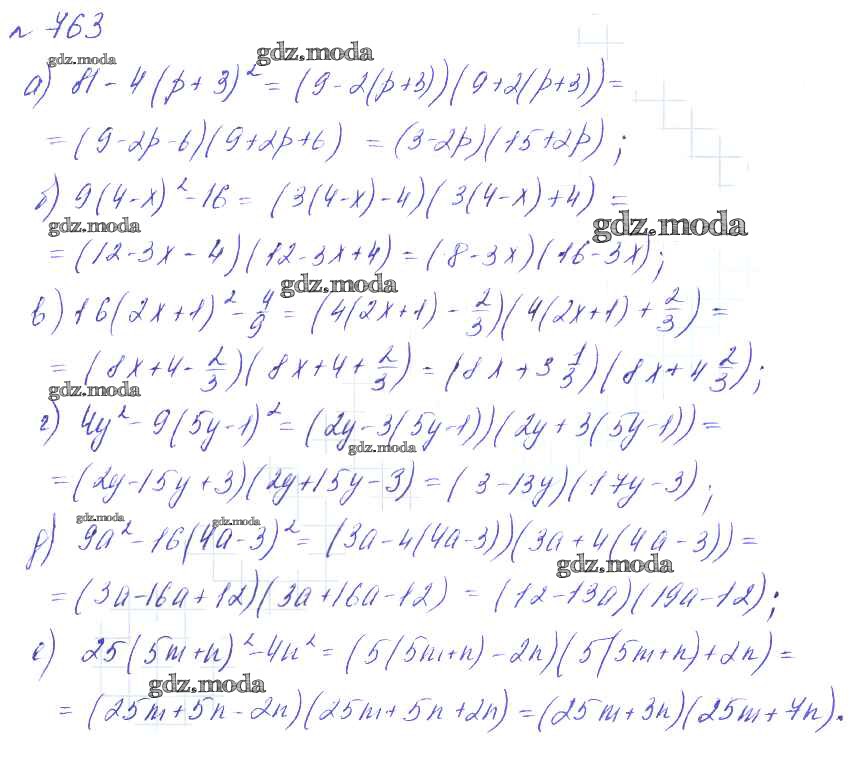 № 763
gdz.moda
gdz.moda
а) 81 - 4(p+3)² = (9 - 2(p+3))(9 + 2(p+3)) =
= (9-2p-6)(9+2p+6) = (3-2p)(15+2p);
б) 9(4-x)² - 16 = (3(4-x)-4)(3(4-x)+4) =
gdz.moda
gdz.moda
= (12-3x-4)(12-3x+4) = (8-3x)(16-3x);
gdz.moda
в) 16(2x+1)² - 4/9 = (4(2x+1) - 2/3)(4(2x+1) + 2/3) =
= (8x+4- 2/3)(8x+4+ 2/3) = (8x+3 1/3)(8x+4 2/3);
gdz.moda
г) 4y² - 9(5y-1)² = (2y-3(5y-1))(2y+3(5y-1)) =
gdz.moda
= (2y-15y+3)(2y+15y-3) = (3-13y)(17y-3);
gdz.moda
gdz.moda
д) 9a² - 16(4a-3)² = (3a-4(4a-3))(3a+4(4a-3)) =
gdz.moda
= (3a-16a+12)(3a+16a-12) = (12-13a)(19a-12);
е) 25(5m+n)² - 4n² = (5(5m+n)-2n)(5(5m+n)+2n) =
gdz.moda
= (25m+5n-2n)(25m+5n+2n) = (25m+3n)(25m+7n).